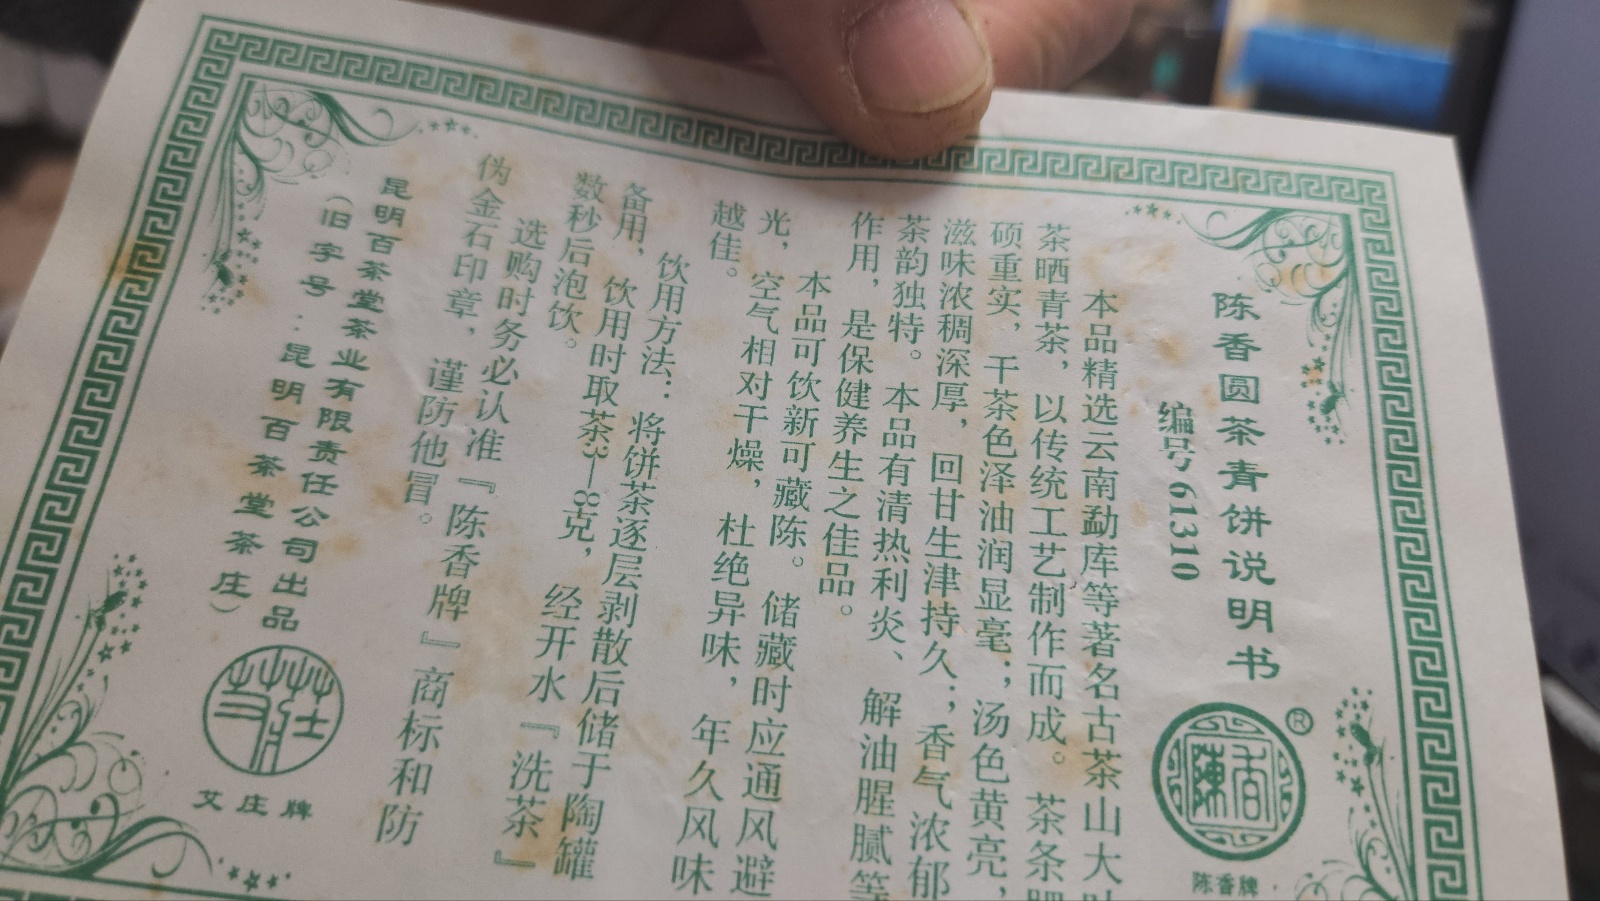 陈香圆茶青饼说明书
编号61310
®
陈香
陈香牌
本品精选云南勐库等著名古茶山大叶
茶晒青茶，以传统工艺制作而成。茶条肥
硕重实，干茶色泽油润显毫；汤色黄亮，
滋味浓稠深厚，回甘生津持久；香气浓郁
茶韵独特。本品有清热利炎、解油腥腻等
作用，是保健养生之佳品。
本品可饮新可藏陈。储藏时应通风避
光，空气相对干燥，杜绝异味，年久风味
越佳。
饮用方法：将饼茶逐层剥散后储于陶罐
备用，饮用时取茶3—8克，经开水『洗茶』
数秒后泡饮。
选购时务必认准『陈香牌』商标和防
伪金石印章，谨防他冒。
昆明百茶堂茶业有限责任公司出品
（旧字号：昆明百茶堂茶庄）
艾庄牌